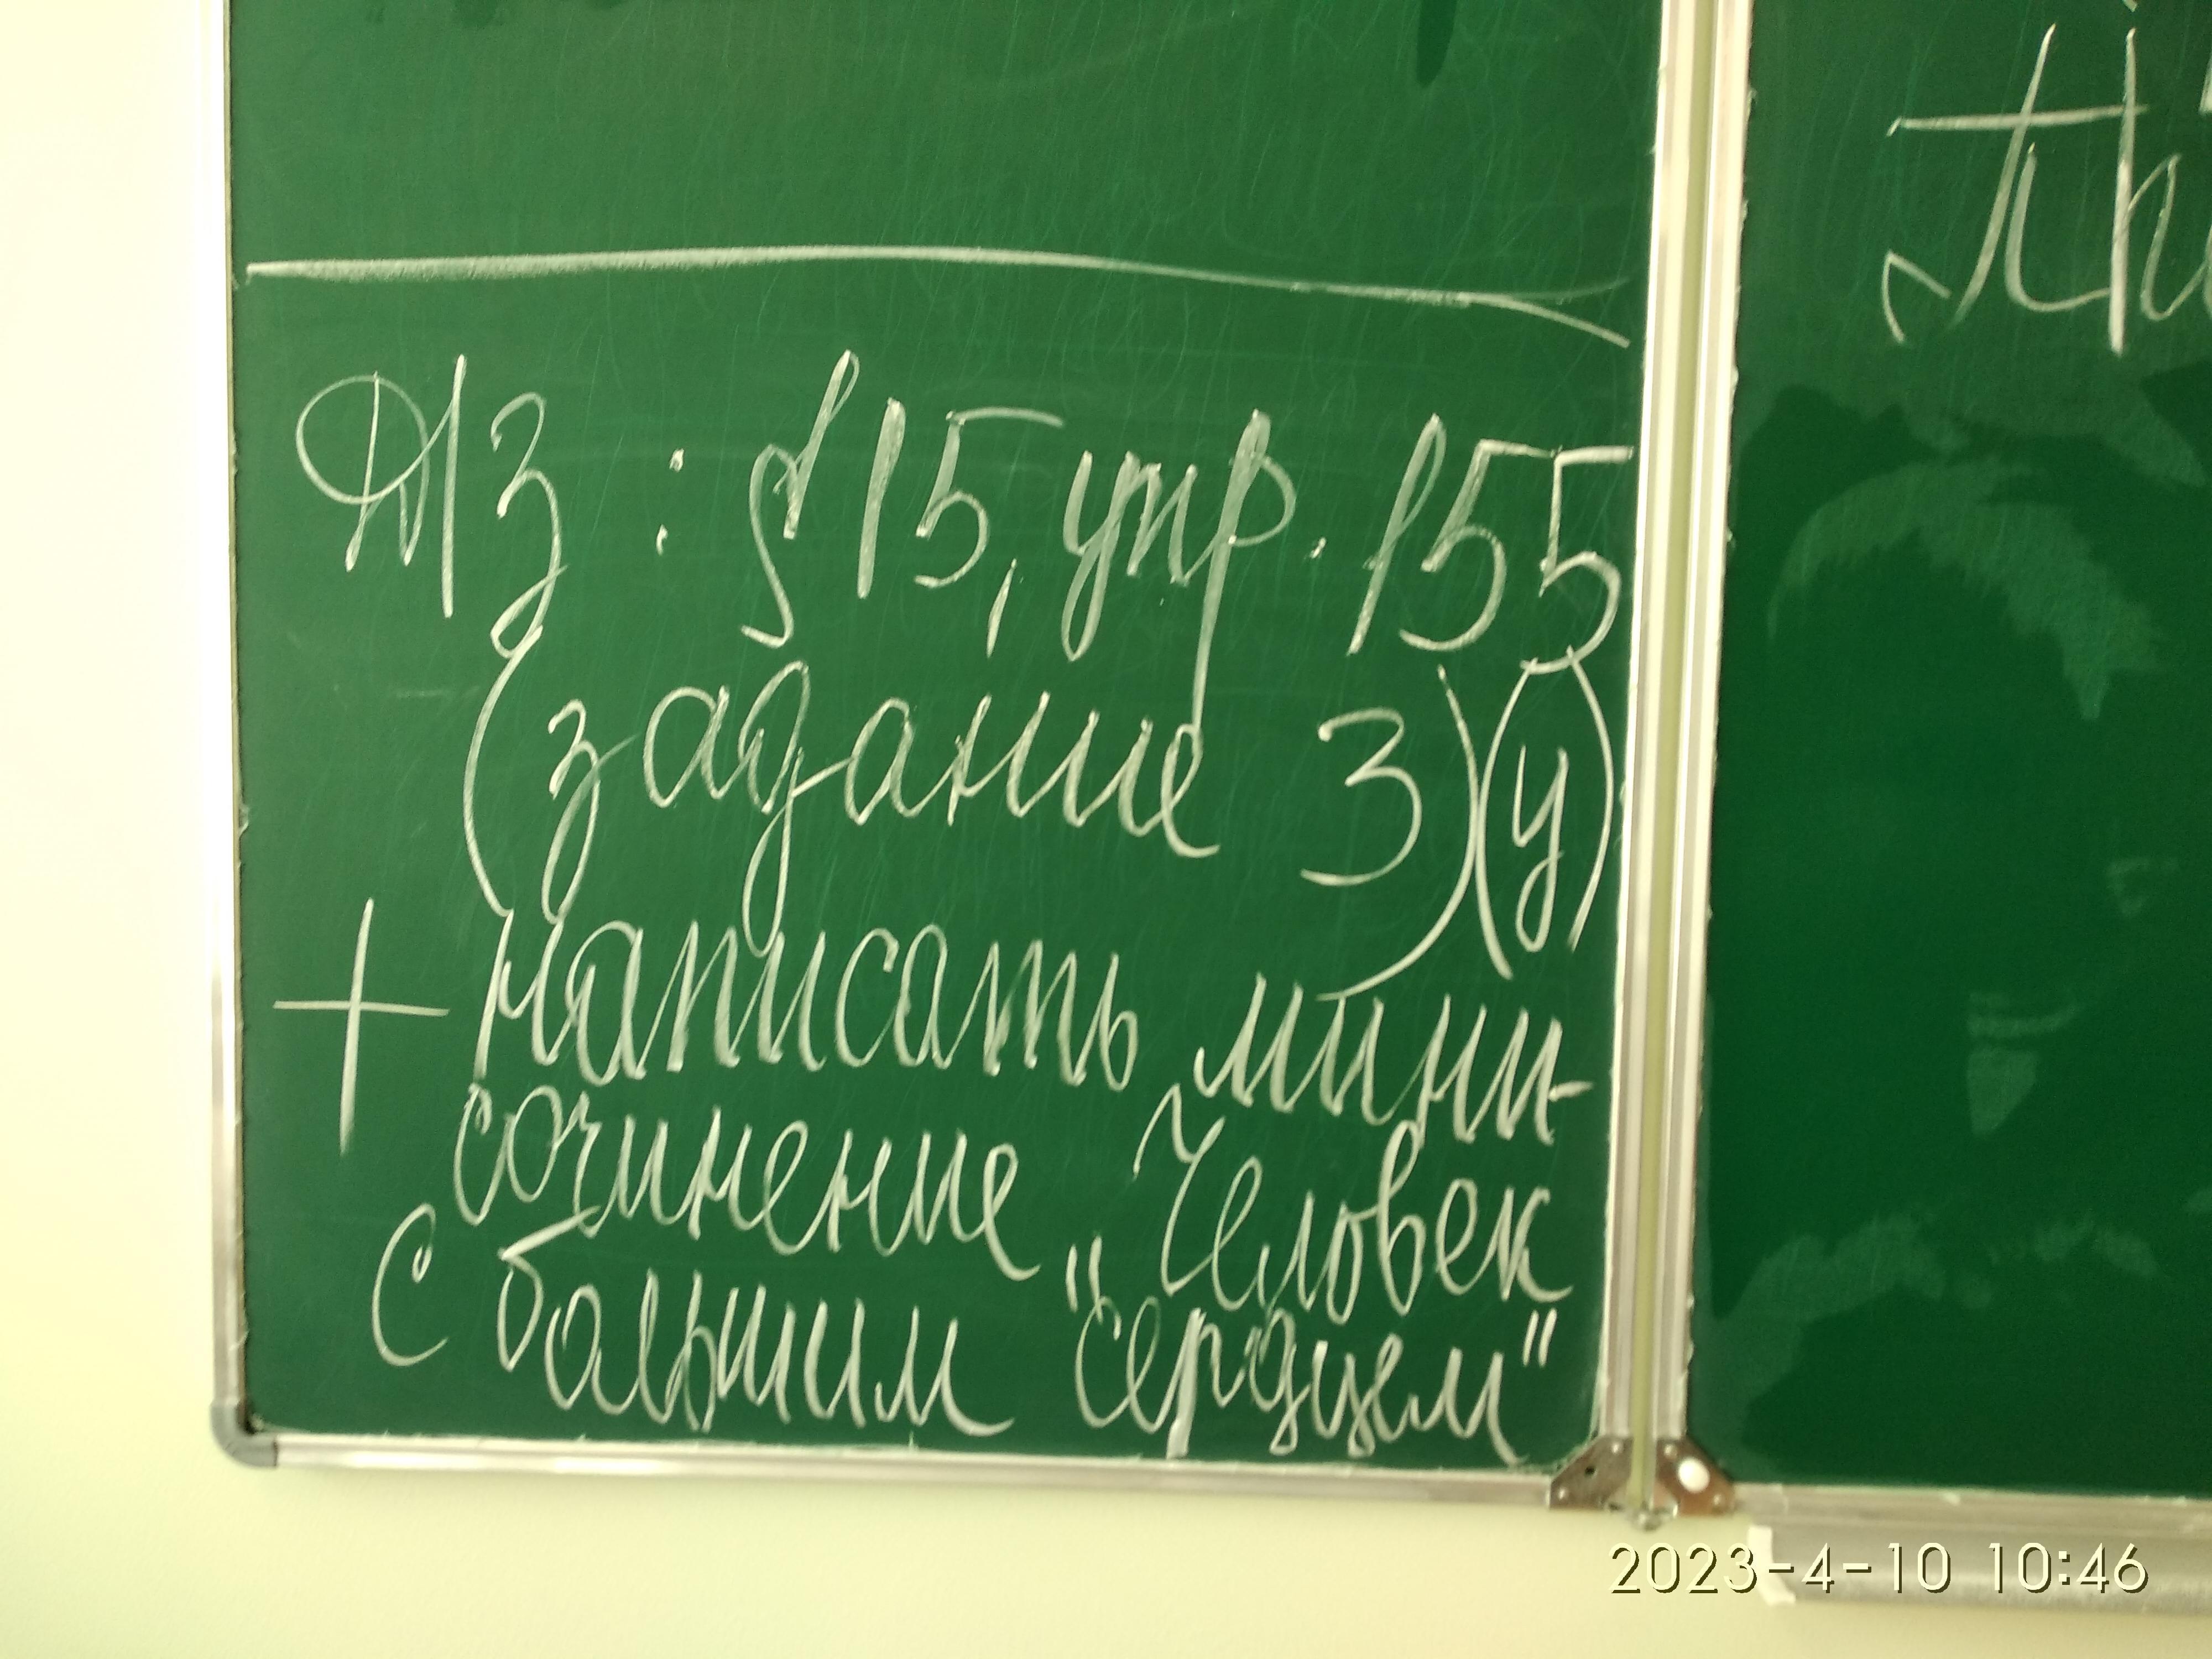 Д/З : § 15, упр. 155
(задание 3)(у)
+ написать мини-
сочинение „Человек
с большим сердцем"
2023-4-10 10:46